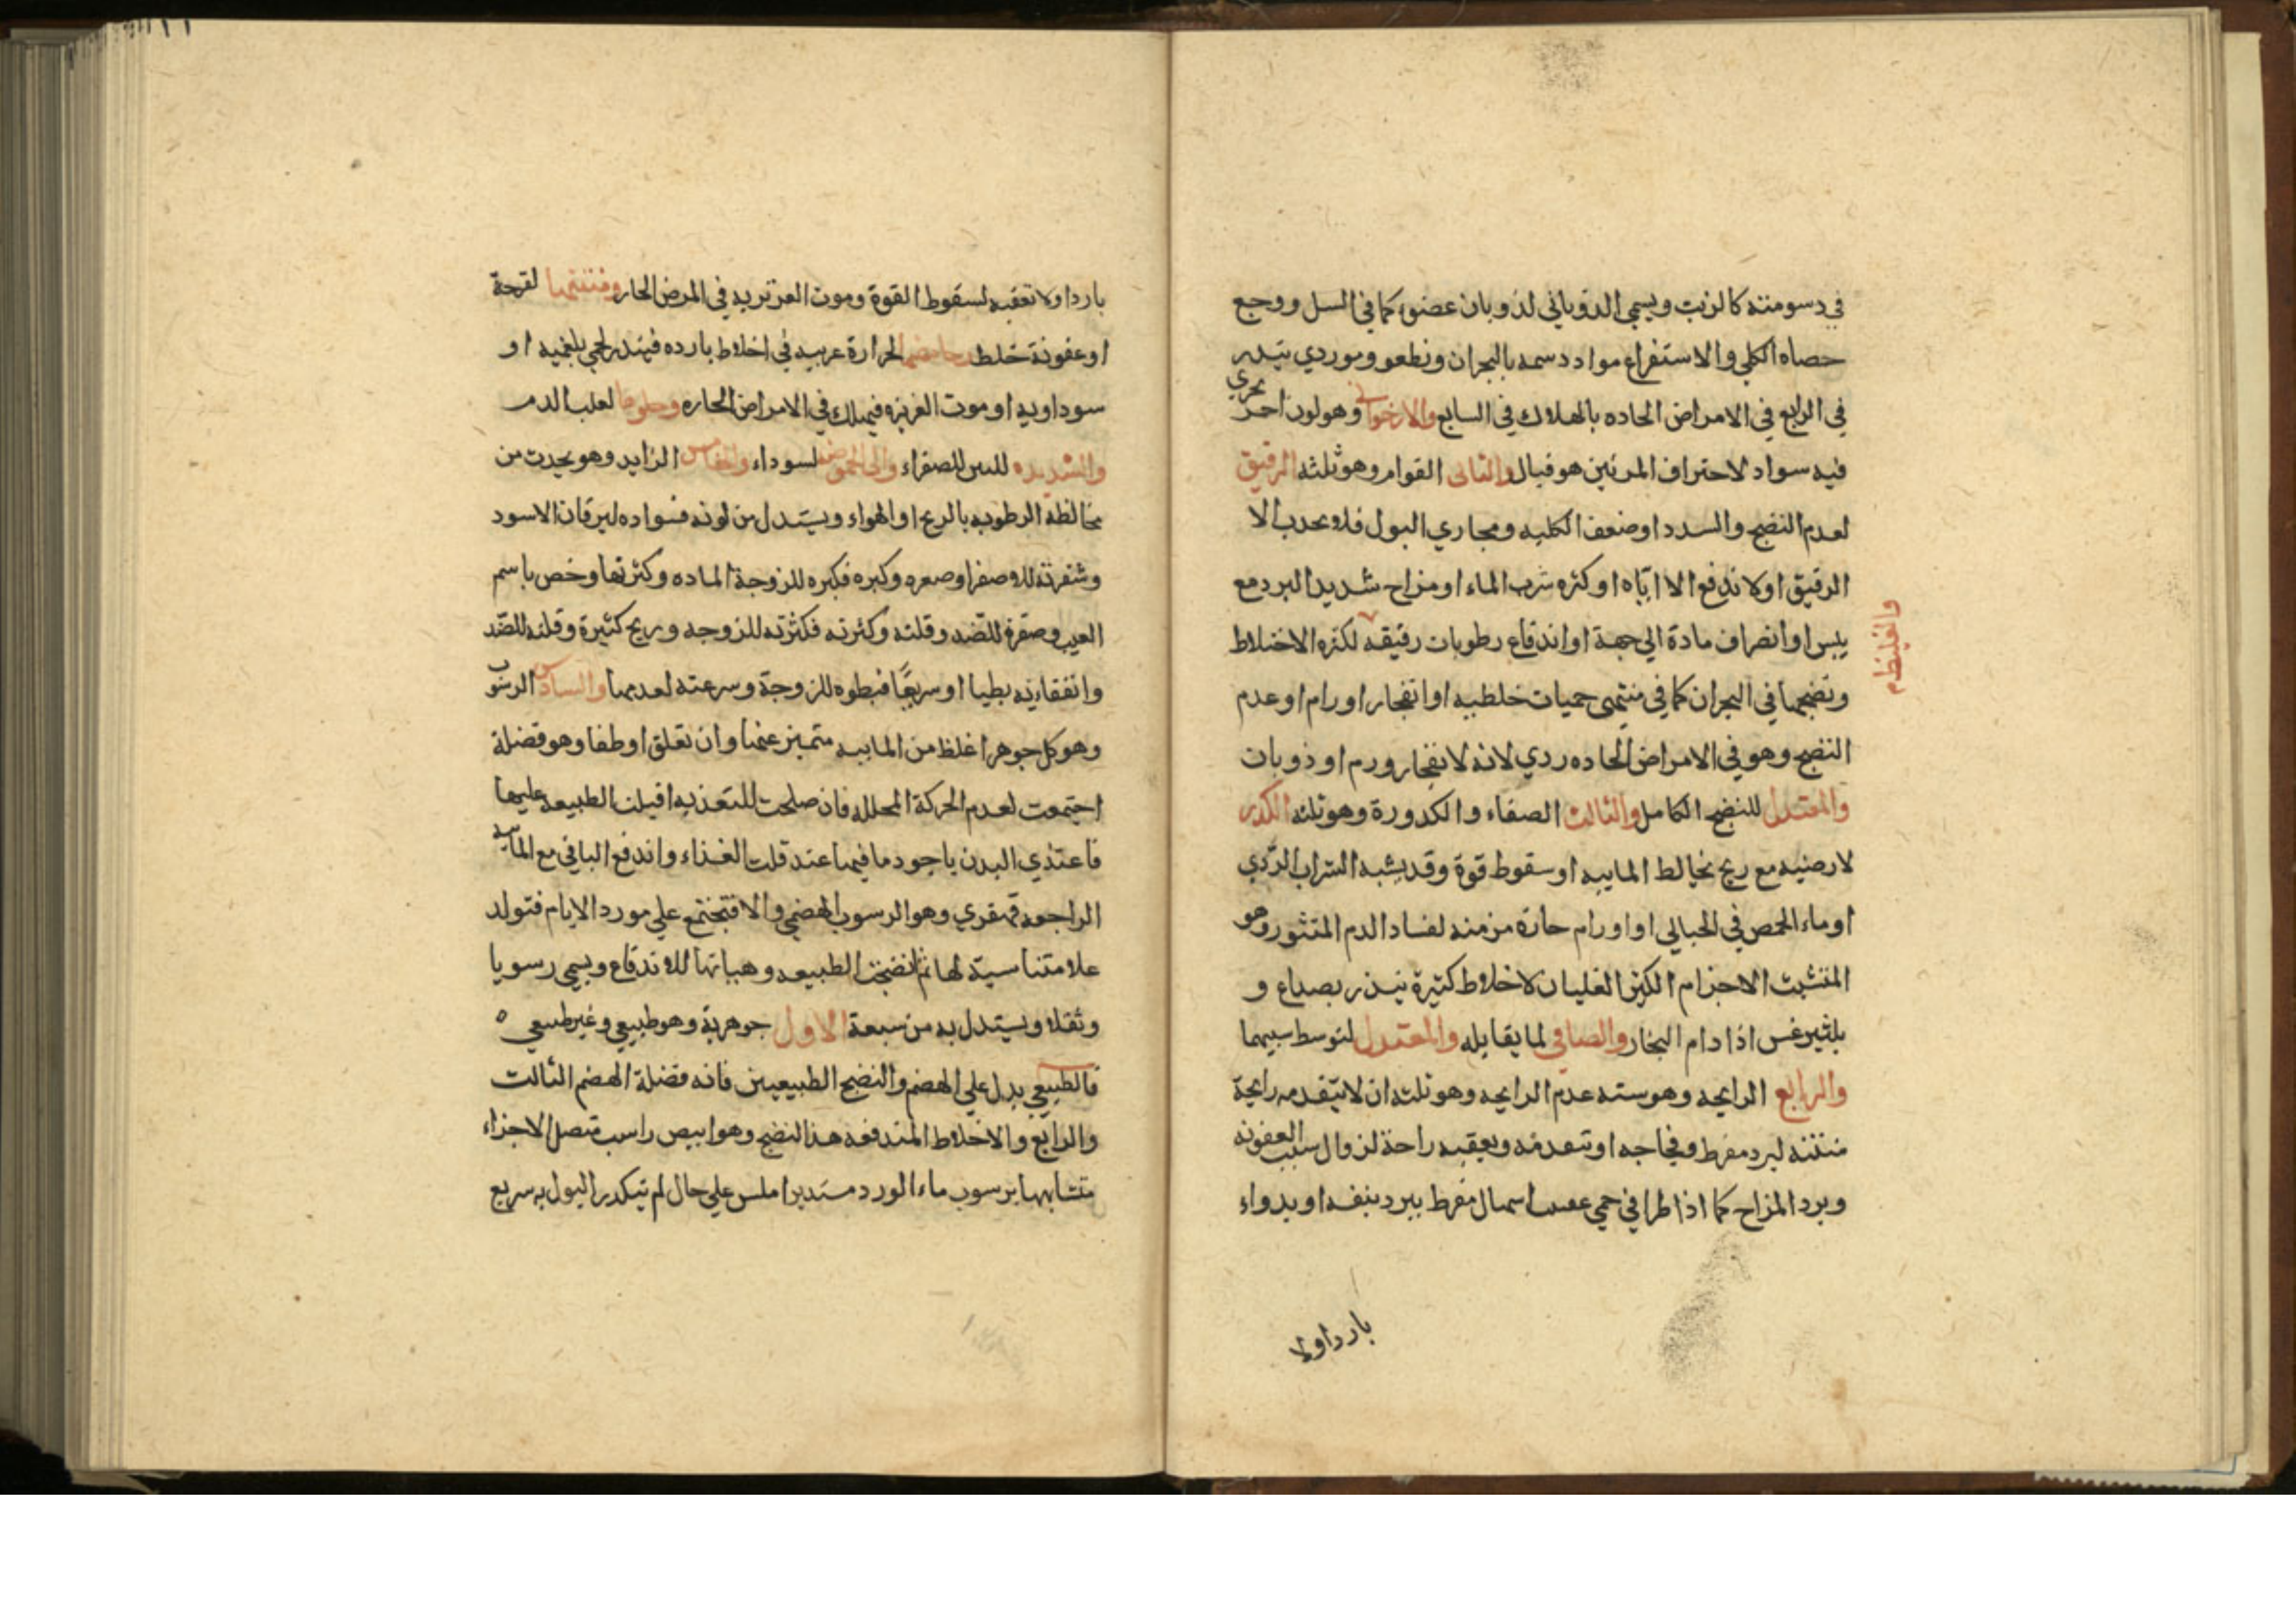 في دسومته كالزيت ويسمي الذوباني لذوبان عضو كما في السل ووجع
حصاه الكلي والاستفراغ مواد دسمه بالبحران ونطعو وموردي
في الرابع في الامراض الحاده بالهلاك في السابع والارخواني وهو لون احمر بحري
فيه سواد لاحتراف المرتين هو فبال والثاني القوام وهو ثلثه الرقيق
لعدم النضج والسدد او ضعف الكليه ومجاري البول فلا يحدب الا
الرقيق او لا تدفع الا اياه او كثره شرب الماء او مزاج شديد البرد مع
يبس او انصراف مادة الي جهة او اندفاع رطوبات رقيقه لكثره الاختلاط
والغليظ
ونضجها في البحران كما في منتهي حميات خلطيه او انفجار اورام او عدم
النضج وهو في الامراض الحاده ردي لانه لانفجار ورم او ذوبان
والمعتدل للنضج الكامل والثالث الصفاء والكدورة وهو ثلثه الكدر
لارضيه مع ريح تخالط المابيه او سقوط قوة وقد يشبه الشراب الردي
او ماء الحمص في الحبالي او اورام حارة مزمنه لفساد الدم المتثور وهو
المتشبت الاجزام الكثر الغليان لاخلاط كثيرة تنذر بصداع و
بلثيرغس اذا دام البخار والصافي لما يقابله والمعتدل لتوسط سببهما
والرابع الرايحه وهو سته عدم الرايحه وهو ثلثه ان لا يتقدمه رايحة
منتنه لبرد مفرط وفجاجه او تتعدمه ويعقبه راحة لزوال سبب العفونه
وبرد المزاج كما اذا طرا في حمي اسهال مفرط ببرد بنفسه او بدواء
باردا ولا
باردا ولا تعقبه لسقوط القوة وموت الغريزيه في المرض الحار ومنتنها لقرحة
او عفونة خلط وحامضها لحرارة غريبه في اخلاط بارده فينذر لحمي بلغميه او
سوداويه او موت الغريزه فيهلك في الامراض الحاره وحلوها لغلب الدم
والشديده للصفراء والي الحموضه لسوداء والخامس الزابد وهو يحدث من
مخالطه الرطوبه بالريح او الهواء ويستدل من لونه فسواده ليرقان الاسود
وشقرته للاصفر او صغره وكبره فكبره للزوجة الماده وكثرتها وخص باسم
العيب وصغره للضد وقلته وكثرته فكثرته للزوجه وريح كثيرة وقلته للضد
وانفقاءيه بطيا او سريعًا فبطوه للزوجة وسرعته لعدمها والسادس الرسوب
وهو كل جوهر اغلظ من المابيه متميز عنها وان تعلق او طفا وهو فضلة
اجتمعت لعدم الحركة المحلله فان صلحت للتغذيه اقبلت الطبيعه عليها
فاعتذي البدن باجود ما فيها عند قلت الغذاء واندفع الباقي مع المابيه
الراجعه قهقري وهو الرسوب الهضمي والا فتجتمع علي مورد الايام فتولد
علامتنا سيّه لها ثم انضجتها الطبيعه وهباتها للاندفاع ويسمي رسوبا
وثقلا ويستدل به من سبعة الاول جوهرية وهو طبيعي وغير طبيعي ه
فالطبيعي يدل علي الهضم والنضج الطبيعيين فانه فضلة الهضم الثالث
والرابع والاخلاط المندفعه هذا النضج وهو ابيض راسب متصل الاجزاء
متشابهها برسوب ماء الورد مستديرا املس علي حال لم يتكدر البول به سريع